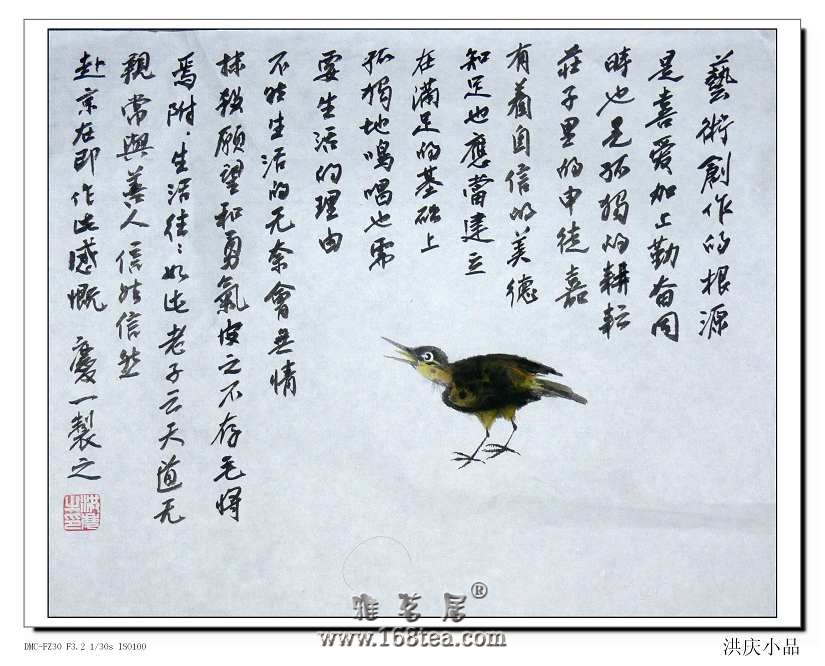 藝術創作的根源
是喜爱加上勤奋同
時也是孤獨的耕耘
莊子里的申徒嘉
有着自信的美德
知足也應當建立
在满足的基础上
孤獨地鳴唱也需
要生活的理由
不然生活的无奈會无情
抹殺願望和勇氣皮之不存毛將
焉附．生活往：如此老子云天道无
親常與善人信然信然
赴京在即作此感慨 慶一製之
雅茗居®
www.168tea.com
DMC-FZ30 F3.2 1/30s ISO100
洪庆小品